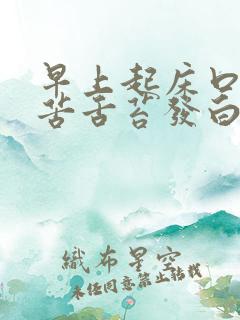 早上起床口
苦舌苔發白
織布星空
未經同意禁止轉載